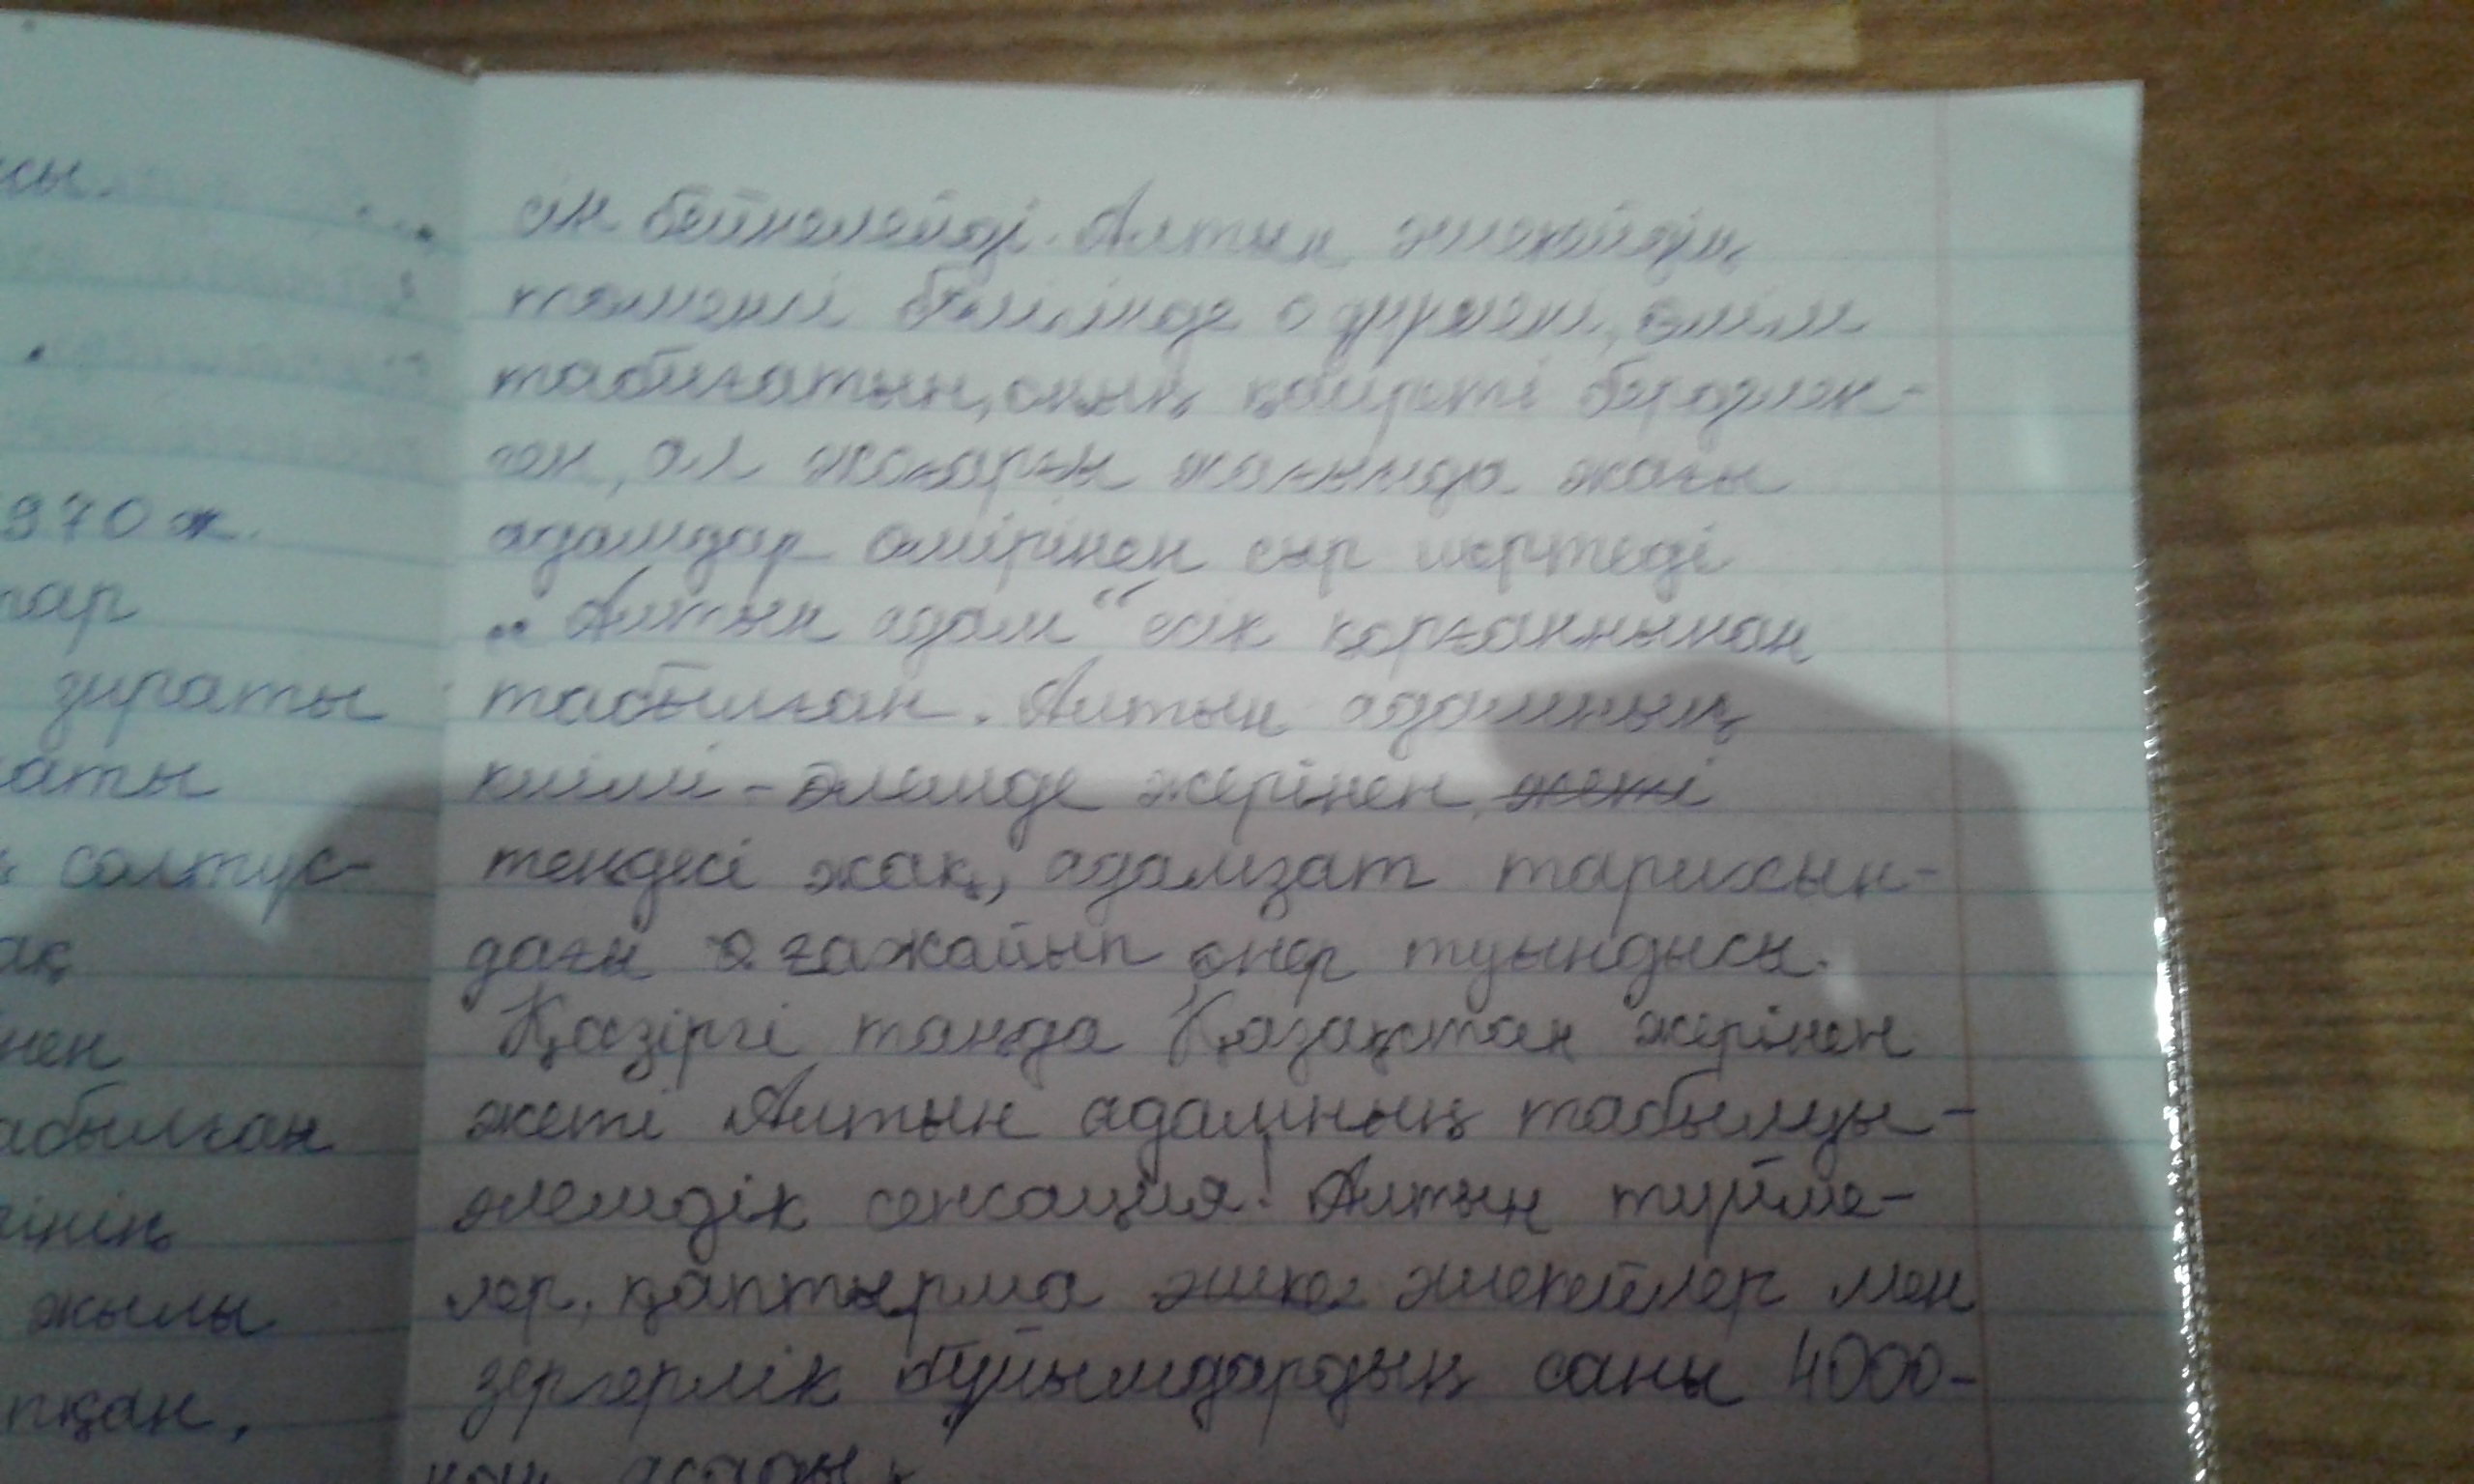 сы.
970 ж.
тар
зираты
аты
солтүс-
ақ
нен
абылған
інің
жылы
пқан,
сін бейнелейді. Алтын әшекейдің
төменгі бөлігінде о дүниені, өлім
табиғатын, оның қайреті бердлек-
ген, ал жоғарғы жағында жағы
адамдар өмірінен сыр шертеді
„Алтын адам“ есік қорғаннынан
табылған. Алтын адамның
киімі - әлемде жерінен, жеті
теңдесі жақ, адамзат тарихын-
дағы ғажайып өнер туындысы.
Қазіргі таңда Қазақстан жерінен
жеті Алтын адамның табылуы-
әлемдік сенсация! Алтын түйме-
лер, қаптырма әшке әшекейлер мен
зергерлік бұйымдардың саны 4000-
нан асады.